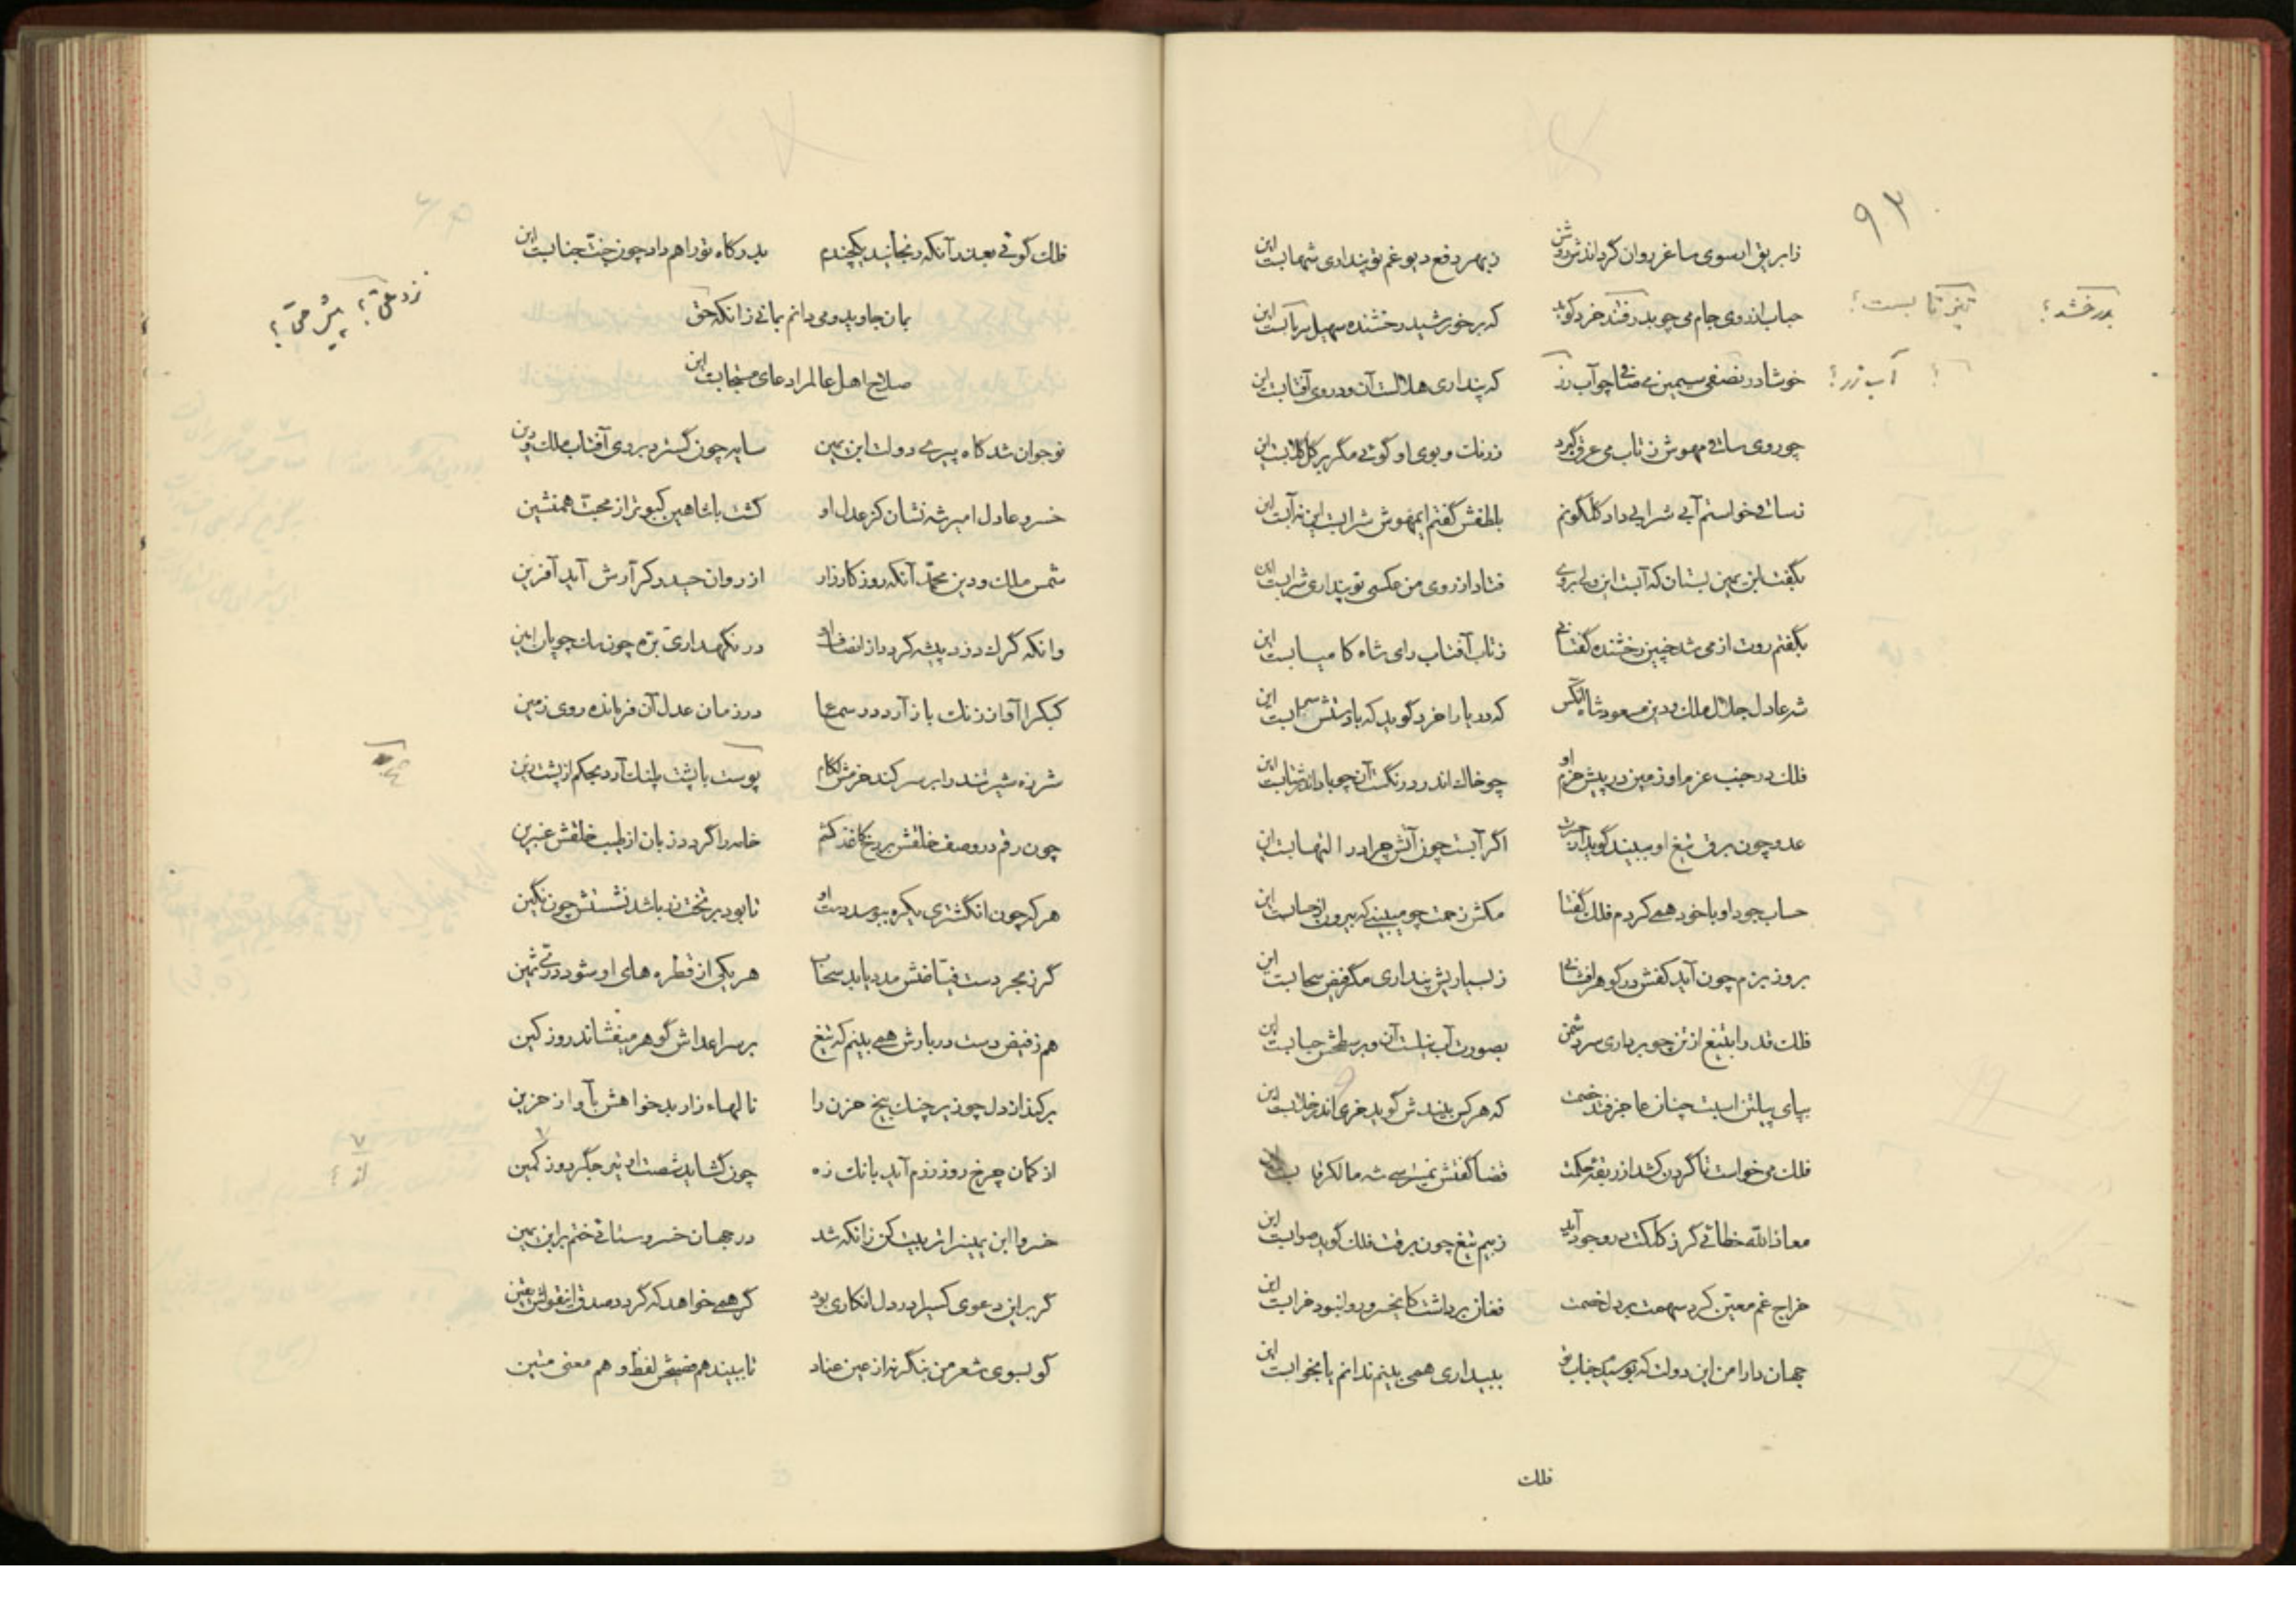 ۹۳
ز ابریق ار سوی ساغر روان گرداندش روشن ز بهر دفع دیو غم تو پنداری شهابست این
حباب از روی جام می چو بدرفشد خرد گوید که بر خورشید رخشنده سهیل پرتابست این
بدرخشد؟ تیز تابست؟
خوشا در نصفی سیمین می صافی چو آب زر که پنداری هلالست آن و در وی آفتابست این
آب زر؟
چو روی ساقی مهوش ز تاب می عرق گیرد ز رنگ و بوی او گوئی مگر بر گل گلابست این
ز ساقی خواستم آبی شرابی داد گلگونم بلطفش گفتم ای مهوش شرابست این نه آبست این
بگفت ابن یمین بستان که آبست این ولی بروی فتاد از روی من عکسی تو پنداری شرابست این
بگفتم روت از می شد چنین رخشنده گفتا نی ز تاب آفتاب رای شاه کامیابست این
شه عادل جلال ملک و دین مسعود شاه آنکس که دریا را خرد گوید که با دستش سرابست این
فلک در جنب عزم او زمین در پیش حزم او چو خاک اندر درنگست آن چو باد اندر شتابست این
عدو چون برق تیغ او ببیند گوید از حیرت اگر آبست چون آتش چرا در التهابست این
حساب جود او با خود همی کردم فلک گفتا مکش زحمت چو میبینی که بیرون از حسابست این
بروز بزم چون آید کفش در گوهر افشانی ز بسیاریش پنداری مگر فیض سحابست این
فلک قدرا بتیغ از تن چو برداری سر دشمن بصورت آب نیلست آن و بر سطحش حبابست این
بپای پیلتن اسبت چنان عاجز فتد خصمت که هر کس بیندش گوید خری اندر خلابست این
فلک می‌خواست تا گردن کشد از ربقهٔ حکمت قضا گفتش نمیترسی شه مالک رقابست
معاذالله خطائی گر ز کلکت در وجود آید ز بیم تیغ چون برقت فلک گوید صوابست این
خراج غم معین کرد سهمت بر دل خصمت فغان برداشت کای خسرو روا نبود خرابست این
جهاندارا من این دولت که بوسیدم جناب تو ببیداری همی بینم ندانم یا بخوابست این
فلک
فلک گوئی بعد آنکه رنجانید یکچندم بدرگاه تو راهم داد چون جنت جنابست این
بمان جاوید و می دانم بمانی زانکه حق
صلاح اهل عالم را دعای مستجابست این
نوجوان شد گاه پیری دولت ابن یمین سایه چون گسترد بروی آفتاب ملک و دین
خسرو عادل امیر شه نشان کز عدل او گشت با شاهین کبوتر از محبت همنشین
شمس ملک و دین محمد آنکه روز کارزار از روان حیدر کرارش آید آفرین
وانکه گرگ دزد پیشه گردد از انصاف او در نگهداری بره چون سگ چوپان امین
کبک را آواز زنگ باز آرد در سماع در زمان عدل آن فرمانده روی زمین
شرزه شیر تند را بر سر کند حزمش لگام پوست با پشت پلنگ آرد بحکم از پشت زین
چون رقم در وصف خلقش بر رخ کاغذ کشم خامه را گردد زبان از طیب خلقش عنبرین
هر که چون انگشتری یکره ببوسد دست او تا بود بر تخت زر باشد نشستش چون نگین
گر ز بحر دست فیاضش مدد یابد سحاب هر یکی از قطره های او شود دری ثمین
هم ز فیض دست دربارش همی بینم که تیغ بر سر اعداش گوهر میفشاند روز کین
برکند از دل چو زیر چنگ بیخ حزن را نالهاء زار بدخواهش بآواز حزین
از کمان چرخ روز رزم آید بانگ زه چون گشاید شصت او تیر جگردوز کمین
از؟
خسروا ابن یمین را تربیت کن زانکه شد در جهان خسرو ستائی ختم بر ابن یمین
گر برین دعوی کسی را در دل انکاری بود گر همی خواهد که گردد صدق این قولش یقین
گو بسوی شعر من بنگر نه از عین عناد تا ببیند هم فصیحش لفظ و هم معنی متین